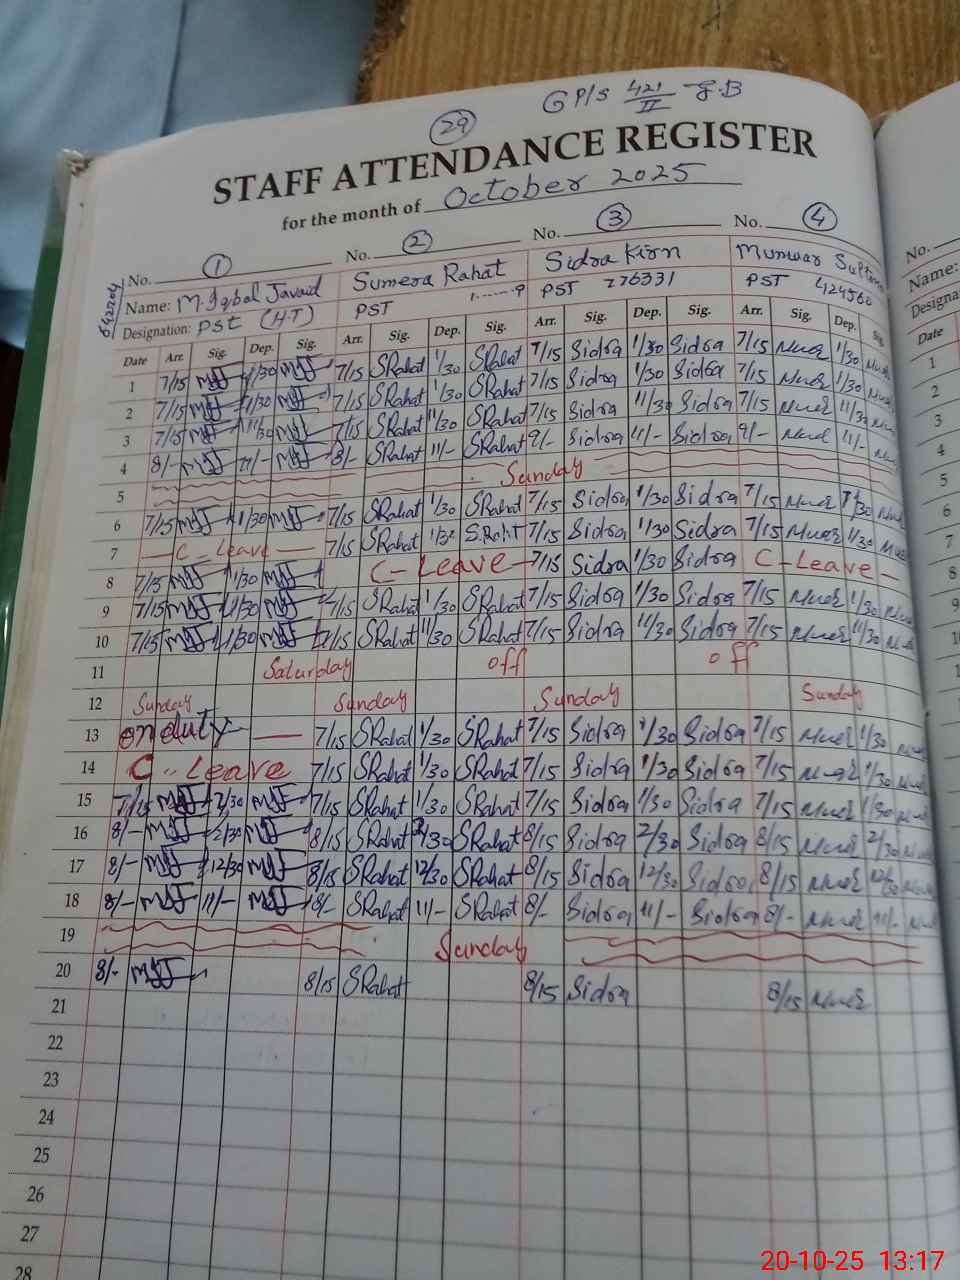 GP/S 421/II G.B
29
STAFF ATTENDANCE REGISTER
for the month of October 2025
No. 1 No. 2 No. 3 No. 4 No.
642204
Name: M. Iqbal Javaid Sumera Rahat Sidra Kirn Munwar Sultana Name:
Designation: PSt (H-T) PST PST 276331 PST 424560 Designa
Date Arr. Sig. Dep. Sig. Arr. Sig. Dep. Sig. Arr. Sig. Dep. Sig. Arr. Sig. Dep. Sig. Date
1 7/15 1/30 7/15 SRahat 1/30 SRahat 7/15 Sidra 1/30 Sidra 7/15 Muer 1/30 1
2 7/15 1/30 7/15 SRahat 1/30 SRahat 7/15 Sidra 1/30 Sidra 7/15 Muer 1/30 2
3 7/15 11/30 7/15 SRahat 11/30 SRahat 7/15 Sidra 11/30 Sidra 7/15 Muer 11/30 3
4 8/- 11/- 8/- SRahat 11/- SRahat 9/- Sidra 11/- Sidra 9/- Muer 11/- 4
5 Sunday 5
6 7/15 1/30 7/15 SRahat 1/30 SRahat 7/15 Sidra 1/30 Sidra 7/15 Muer 1/30 6
7 C-Leave 7/15 SRahat 1/30 S.Raht 7/15 Sidra 1/30 Sidra 7/15 Muer 1/30 7
8 7/15 1/30 C-Leave 7/15 Sidra 1/30 Sidra C-Leave 8
9 7/15 1/30 7/15 SRahat 1/30 SRahat 7/15 Sidra 1/30 Sidra 7/15 Muer 1/30 9
10 7/15 11/30 7/15 SRahat 11/30 SRahat 7/15 Sidra 11/30 Sidra 7/15 Muer 11/30 10
11 Saturday off off
12 Sunday Sunday Sunday Sunday
13 on duty 7/15 SRahat 1/30 SRahat 7/15 Sidra 1/30 Sidra 7/15 Muer 1/30
14 C-Leave 7/15 SRahat 1/30 SRahat 7/15 Sidra 1/30 Sidra 7/15 Muer 1/30
15 7/15 1/30 7/15 SRahat 1/30 SRahat 7/15 Sidra 1/30 Sidra 7/15 Muer 1/30
16 8/- 2/30 8/15 SRahat 2/30 SRahat 8/15 Sidra 2/30 Sidra 8/15 Muer 2/30
17 8/- 12/30 8/15 SRahat 12/30 SRahat 8/15 Sidra 12/30 Sidra 8/15 Muer 12/30
18 8/- 11/- 8/- SRahat 11/- SRahat 8/- Sidra 11/- Sidra 8/- Muer 11/-
19 Sunday
20 8/- 8/15 SRahat 8/15 Sidra 8/15 Muer
21
22
23
24
25
26
27
28
20-10-25 13:17